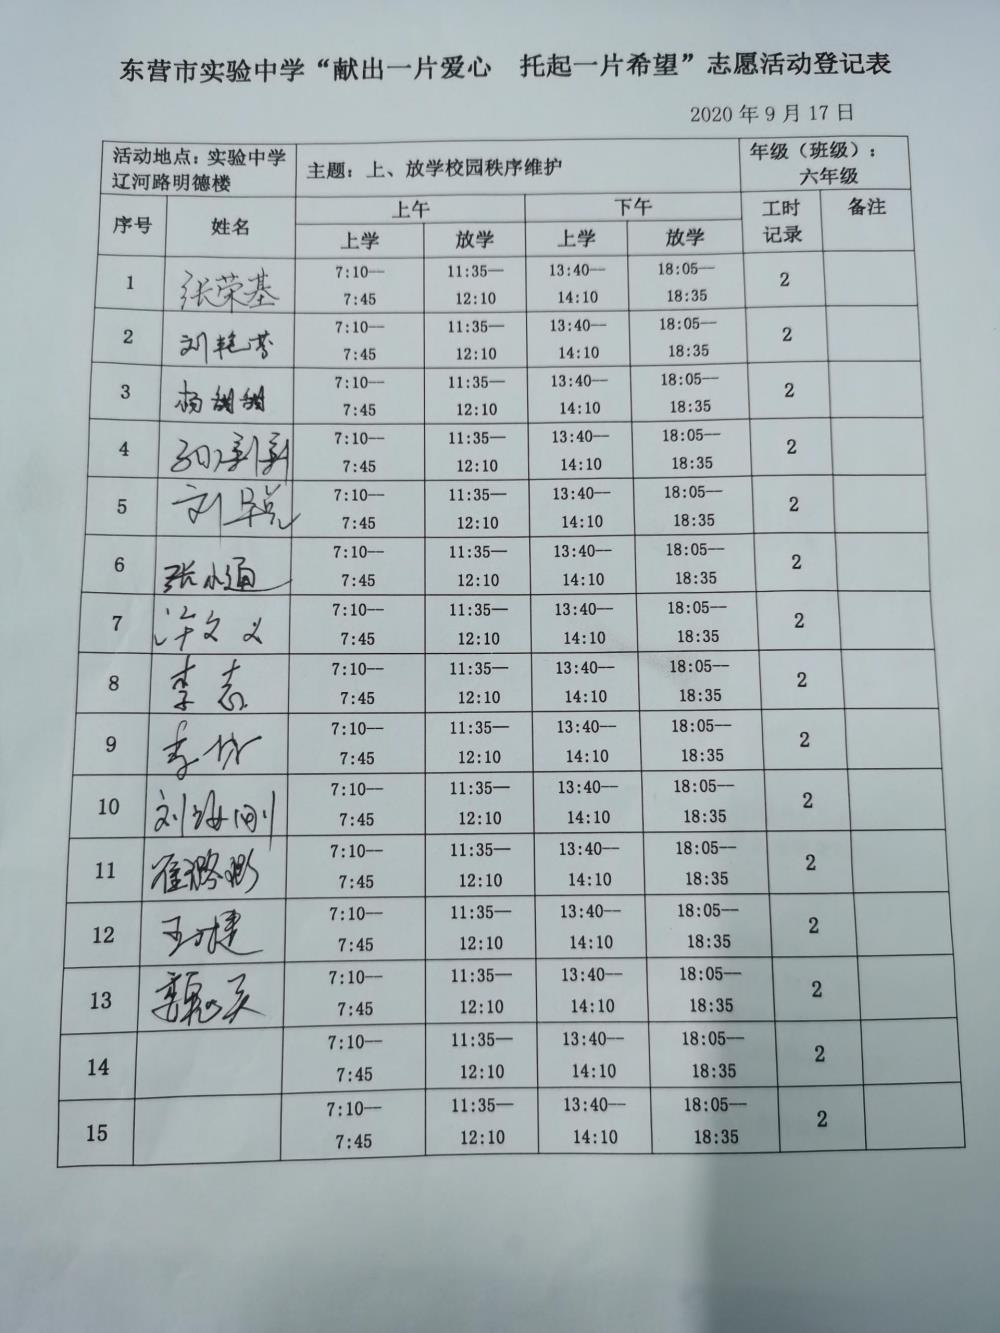 东营市实验中学“献出一片爱心 托起一片希望”志愿活动登记表
2020年9月17日
活动地点：实验中学辽河路明德楼 主题：上、放学校园秩序维护 年级（班级）：六年级
序号 姓名 上午 下午 工时记录 备注
上学 放学 上学 放学
1 张荣基 7:10—7:45 11:35—12:10 13:40—14:10 18:05—18:35 2
2 刘艳芬 7:10—7:45 11:35—12:10 13:40—14:10 18:05—18:35 2
3 杨甜甜 7:10—7:45 11:35—12:10 13:40—14:10 18:05—18:35 2
4 7:10—7:45 11:35—12:10 13:40—14:10 18:05—18:35 2
5 7:10—7:45 11:35—12:10 13:40—14:10 18:05—18:35 2
6 张小通 7:10—7:45 11:35—12:10 13:40—14:10 18:05—18:35 2
7 许文义 7:10—7:45 11:35—12:10 13:40—14:10 18:05—18:35 2
8 李志 7:10—7:45 11:35—12:10 13:40—14:10 18:05—18:35 2
9 7:10—7:45 11:35—12:10 13:40—14:10 18:05—18:35 2
10 7:10—7:45 11:35—12:10 13:40—14:10 18:05—18:35 2
11 崔璐璐 7:10—7:45 11:35—12:10 13:40—14:10 18:05—18:35 2
12 7:10—7:45 11:35—12:10 13:40—14:10 18:05—18:35 2
13 7:10—7:45 11:35—12:10 13:40—14:10 18:05—18:35 2
14 7:10—7:45 11:35—12:10 13:40—14:10 18:05—18:35 2
15 7:10—7:45 11:35—12:10 13:40—14:10 18:05—18:35 2